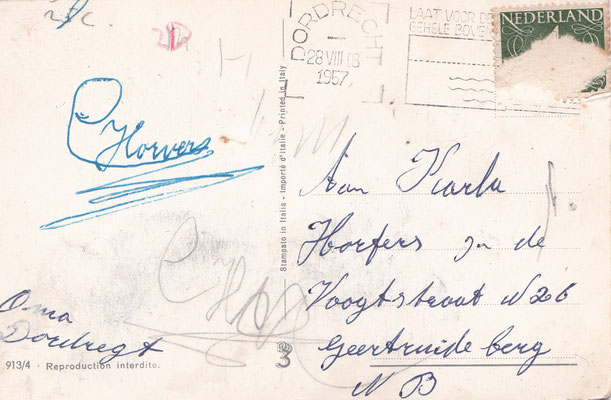 DORDRECHT
28 VIII 18
1957
LAAT VOOR DE
GEHELE BOVEN
NEDERLAND
C Horvers
Stampato in Italia - Importé d'Italie - Printed in Italy
Aan Karla
Horfers in de
Voogtstraat N 26
Geertruide berg
N B
Oma
Dordregt
3
913/4 · Reproduction interdite.